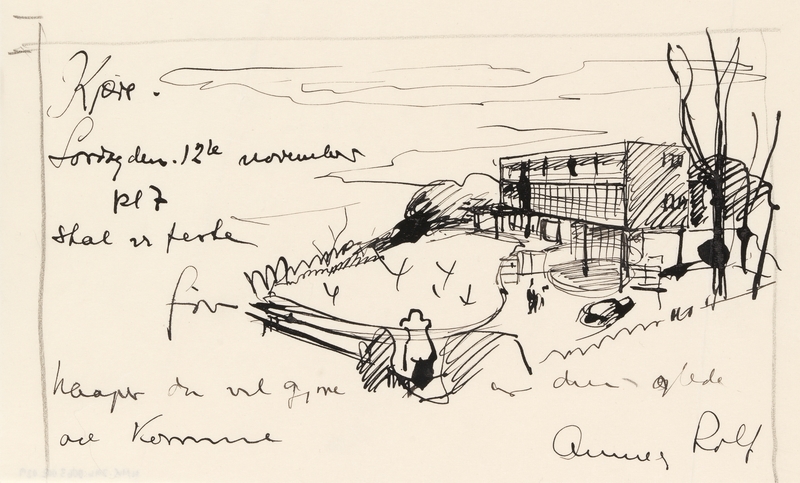 Kjære.
Lørdag den. 12te november
kl 7
skal vi feste
for
haaper du vil gjøre os den glede
at komme
Rolf